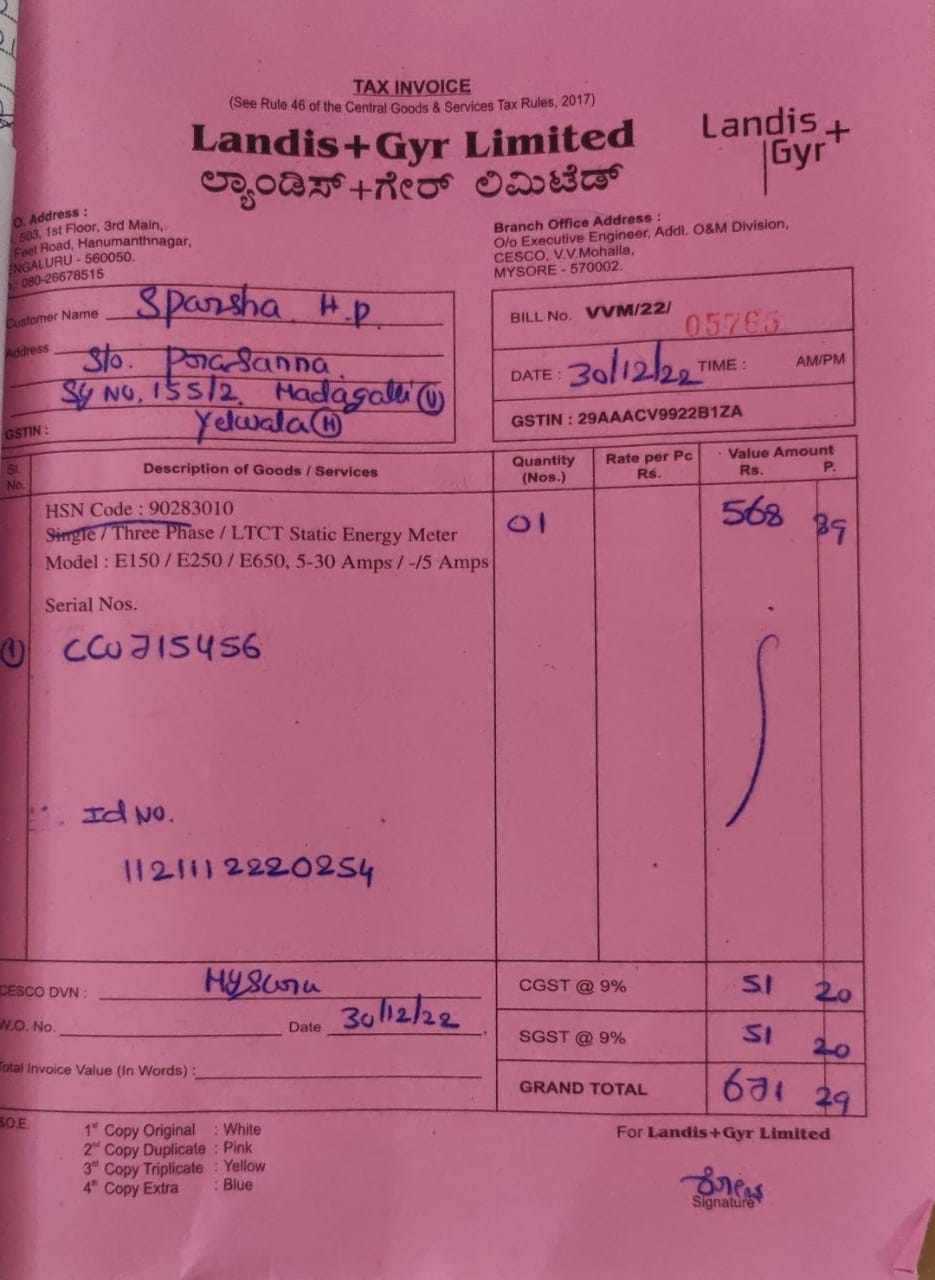 TAX INVOICE
(See Rule 46 of the Central Goods & Services Tax Rules, 2017)
Landis+Gyr Limited
ಲ್ಯಾಂಡಿಸ್+ಗೇರ್ ಲಿಮಿಟೆಡ್
Landis
Gyr+
O. Address :
503, 1st Floor, 3rd Main,
Feet Road, Hanumanthnagar,
ENGALURU - 560050.
080-26678515
Branch Office Address :
O/o Executive Engineer, Addl. O&M Division,
CESCO, V.V.Mohalla,
MYSORE - 570002.
Customer Name Sparsha H.P.
Address S/o. Prasanna
Sy No. 155/2. Madagalli (V)
Yelwala (H)
GSTIN :
BILL No. VVM/22/ 05765
DATE : 30/12/22 TIME : AM/PM
GSTIN : 29AAACV9922B1ZA
Sl. No. Description of Goods / Services Quantity (Nos.) Rate per Pc Rs. Value Amount Rs. P.
HSN Code : 90283010
Single / Three Phase / LTCT Static Energy Meter 01 568 89
Model : E150 / E250 / E650, 5-30 Amps / -/5 Amps
Serial Nos.
1 CCW715456
Id No.
1121112220254
CESCO DVN : Mysuru
W.O. No. Date 30/12/22
Total Invoice Value (In Words) :
CGST @ 9% 51 20
SGST @ 9% 51 20
GRAND TOTAL 671 29
S.O.E.
1st Copy Original : White
2nd Copy Duplicate : Pink
3rd Copy Triplicate : Yellow
4th Copy Extra : Blue
For Landis+Gyr Limited
Signature